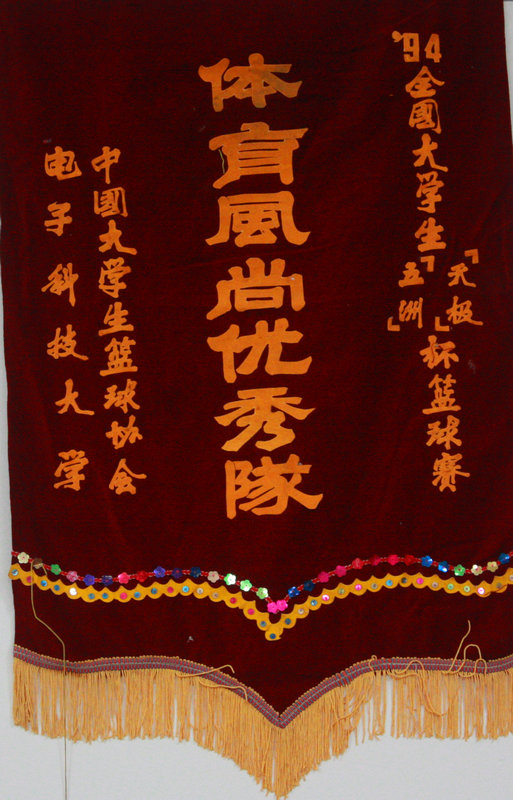 '94全國大学生「天极」「五洲」杯篮球赛
体育風尚优秀隊
中國大学生篮球协会
电子科技大学